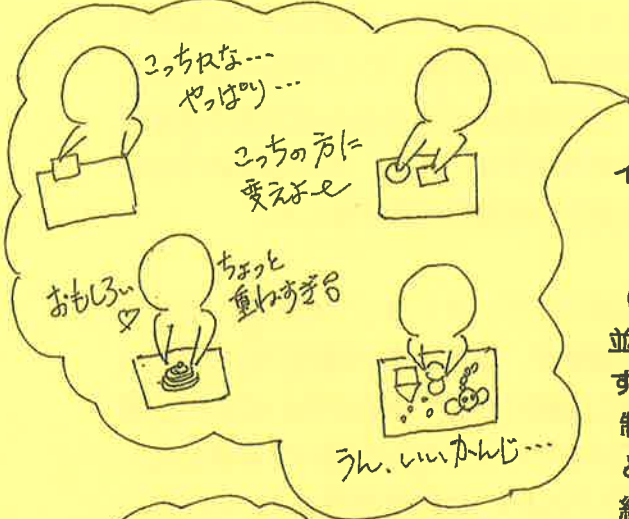 こっちかな…
やっぱり…
こっちの方に
変えよーと
おもしろい♡
ちょっと
重ねすぎ
うん、いい、かんじ…
イ
並
す
制
と